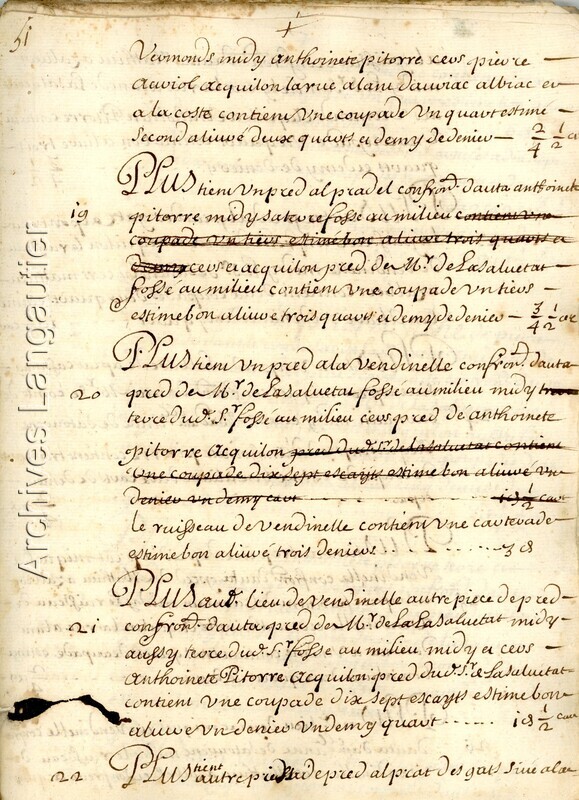 51
Vermonds midy anthoinete pitorre cers pierre
auriol acquilon la rue alant dauriac albiac et
a la coste contient une coupade un quart estimé
second alivré deux quarts et demy de denier — 2/4 1/2 a
19
PLUS tient un pred al pradel confron.d dauta anthoinete
pitorre midy sa terre fossé au milieu contient une
coupade un tiers estimé bon alivré trois quarts et
demy cers et acquilon pred de M.r de Lasaluetat
fossé au milieu contient une coupade un tiers
estimé bon alivré trois quarts et demy de denier — 3/4 1/2 ar
20
PLUS tient un pred a la Vendinelle confron.d dauta
pred de M.r de Lasaluetat fossé au milieu midy terre
terre dud. S.r fossé au milieu cers pred de anthoinete
pitorre acquilon pred dud. S.r de lasaluetat contient
une coupade dix sept escayts estimé bon alivré un
denier un demy cart 1 d 1/2 cart
le ruisseau de vendinelle contient une carterade
estimé bon alivré trois deniers 3 d
21
PLUS aud. lieu de vendinelle autre piece de pred
confron.d dauta pred de M.r de La Lasaluetat midy
aussy terre dud. S.r fosse au milieu midy et cers
Anthoinete Pitorre acquilon pred dud. S.r de Lasaluetat
contient une coupade dix sept escayts estimé bon
alivré un denier un demy quart 1 d 1/2 cart
22
PLUS tient
autre piece de pred al prat des gats sive al
Archives Langautier